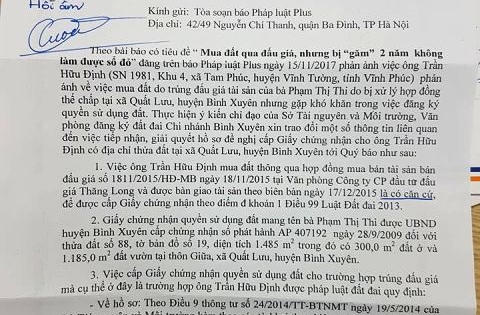 Hồi âm
Kính gửi: Tòa soạn báo Pháp luật Plus
Địa chỉ: 42/49 Nguyễn Chí Thanh, quận Ba Đình, TP Hà Nội
Theo bài báo có tiêu đề " Mua đất qua đấu giá, nhưng bị "găm" 2 năm không
làm được sổ đỏ" đăng trên báo Pháp luật Plus ngày 15/11/2017 phản ánh việc ông Trần
Hữu Định (SN 1981, Khu 4, xã Tam Phúc, huyện Vĩnh Tường, tỉnh Vĩnh Phúc) phản
ánh về việc mua do trúng đấu giá tài sản của bà Phạm Thị Thi do bị xử lý hợp đồng
thế chấp tại xã Quất Lưu, huyện Bình Xuyên nhưng gặp khó khăn trong việc đăng ký
quyền sử dụng đất. Thực hiện ý kiến chỉ đạo của Sở Tài nguyên và Môi trường, Văn
phòng đăng ký đất đai Chi nhánh Bình Xuyên xin trao đổi một số thông tin liên quan
đến việc tiếp nhận, giải quyết hồ sơ đề nghị cấp Giấy chứng nhận cho ông Trần Hữu
Định có địa chỉ thửa đất tại xã Quất Lưu, huyện Bình Xuyên tới Quý báo như sau:
1. Việc ông Trần Hữu Định mua đất thông qua hợp đồng mua bán tài sản bán
đấu giá số 1811/2015/HĐ-MB ngày 18/11/2015 tại Văn phòng Công ty CP đầu tư đấu
giá Thăng Long và được bàn giao tài sản theo biên bản ngày 17/12/2015 là có căn cứ,
để được cấp Giấy chứng nhận theo điểm d khoản 1 Điều 99 Luật Đất đai 2013.
2. Giấy chứng nhận quyền sử dụng đất mang tên bà Phạm Thị Thi được UBND
huyện Bình Xuyên cấp chứng nhận số phát hành AP 407192 ngày 28/9/2009 đối với
thửa đất số 88, tờ bản đồ số 19, diện tích 1.485 m² trong đó có 300,0 m² đất ở và
1.185,0 m² đất vườn tại thôn Giữa, xã Quất Lưu, huyện Bình Xuyên.
3. Việc cấp Giấy chứng nhận quyền sử dụng đất cho trường hợp trúng đấu giá
mà cụ thể ở đây là trường hợp ông Trần Hữu Định được pháp luật đất đai quy định:
- Về hồ sơ: Theo Điều 9 thông tư số 24/2014/TT-BTNMT ngày 19/5/2014 của